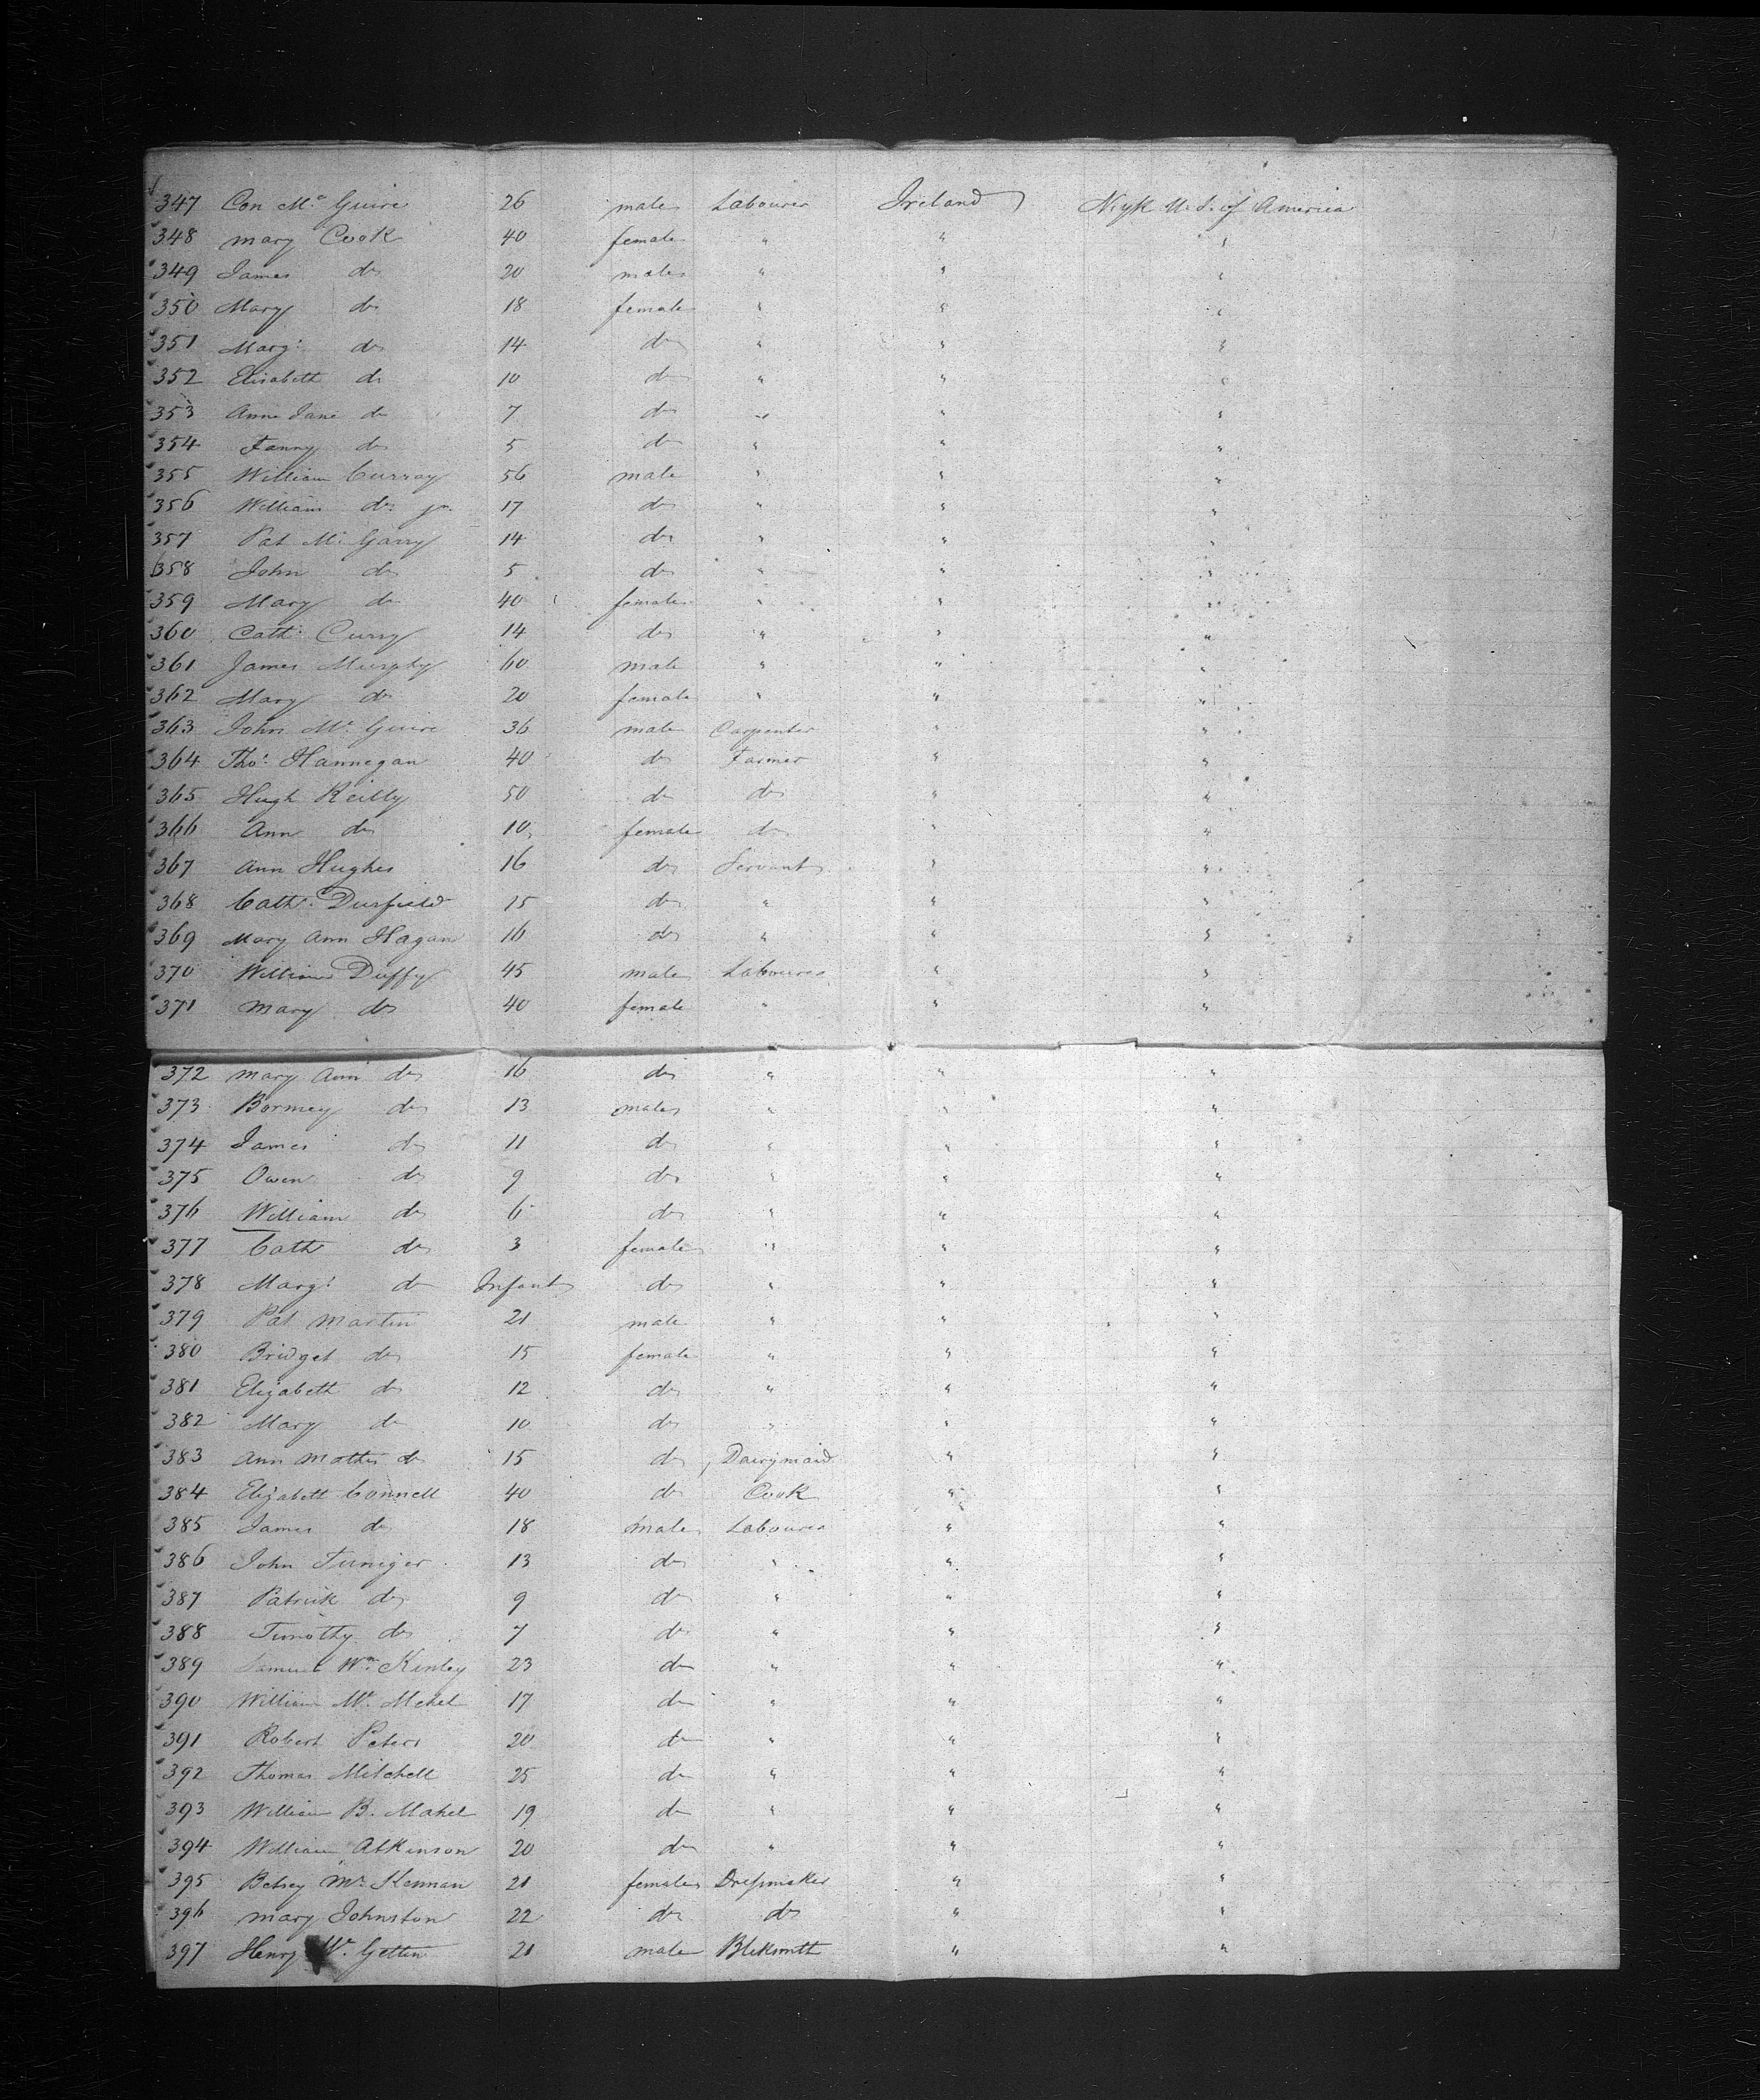 347 Con Mc Guire 26 male Labourer Ireland NYk U.S. of America
348 Mary Cook 40 female " " "
349 James do 20 male " " "
350 Mary do 18 female " " "
351 Margt do 14 do " " "
352 Elisabeth do 10 do " " "
353 Anne Jane do 7 do " " "
354 Fanny do 5 do " " "
355 William Curray 56 male " " "
356 William do jr. 17 do " " "
357 Pat Mc Garry 14 do " " "
358 John do 5 do " " "
359 Mary do 40 female " " "
360 Cath. Curry 14 do " " "
361 James Murphy 60 male " " "
362 Mary do 20 female " " "
363 John Mc Guire 36 male Carpenter " "
364 Thos Hannegan 40 do Farmer " "
365 Hugh Reilly 50 do do " "
366 Ann do 10 female do " "
367 Ann Hughes 16 do Servant " "
368 Cath. Durfield 15 do " " "
369 Mary Ann Hagan 16 do " " "
370 William Duffy 45 male Labourer " "
371 Mary do 40 female " " "
372 Mary Ann do 16 do " " "
373 Barney do 13 male " " "
374 James do 11 do " " "
375 Owen do 9 do " " "
376 William do 6 do " " "
377 Cath do 3 female " " "
378 Margt do Infant do " " "
379 Pat Martin 21 male " " "
380 Bridget do 15 female " " "
381 Elizabeth do 12 do " " "
382 Mary do 10 do " " "
383 Ann do 15 do Dairymaid " "
384 Elizabeth Connell 40 do Cook " "
385 James do 18 male Labourer " "
386 John 13 do " " "
387 Patrick do 9 do " " "
388 Timothy do 7 do " " "
389 Samuel Wm Kinley 23 do " " "
390 William Mc 17 do " " "
391 Robert Peters 20 do " " "
392 Thomas Mitchell 25 do " " "
393 William B. Mahel 19 do " " "
394 William Atkinson 20 do " " "
395 Betsey Mc Kennan 21 female Dressmaker " "
396 Mary Johnston 22 do do " "
397 Henry Mc Gettin 21 male Blcksmith " "